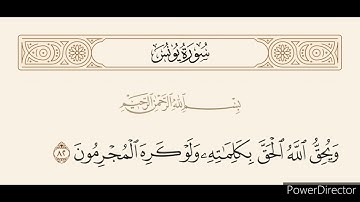 سُورَةُ يُونُسَ
بِسْمِ ٱللَّهِ ٱلرَّحْمَٰنِ ٱلرَّحِيمِ
وَيُحِقُّ ٱللَّهُ ٱلْحَقَّ بِكَلِمَٰتِهِۦ وَلَوْ كَرِهَ ٱلْمُجْرِمُونَ ٨٢
PowerDirector